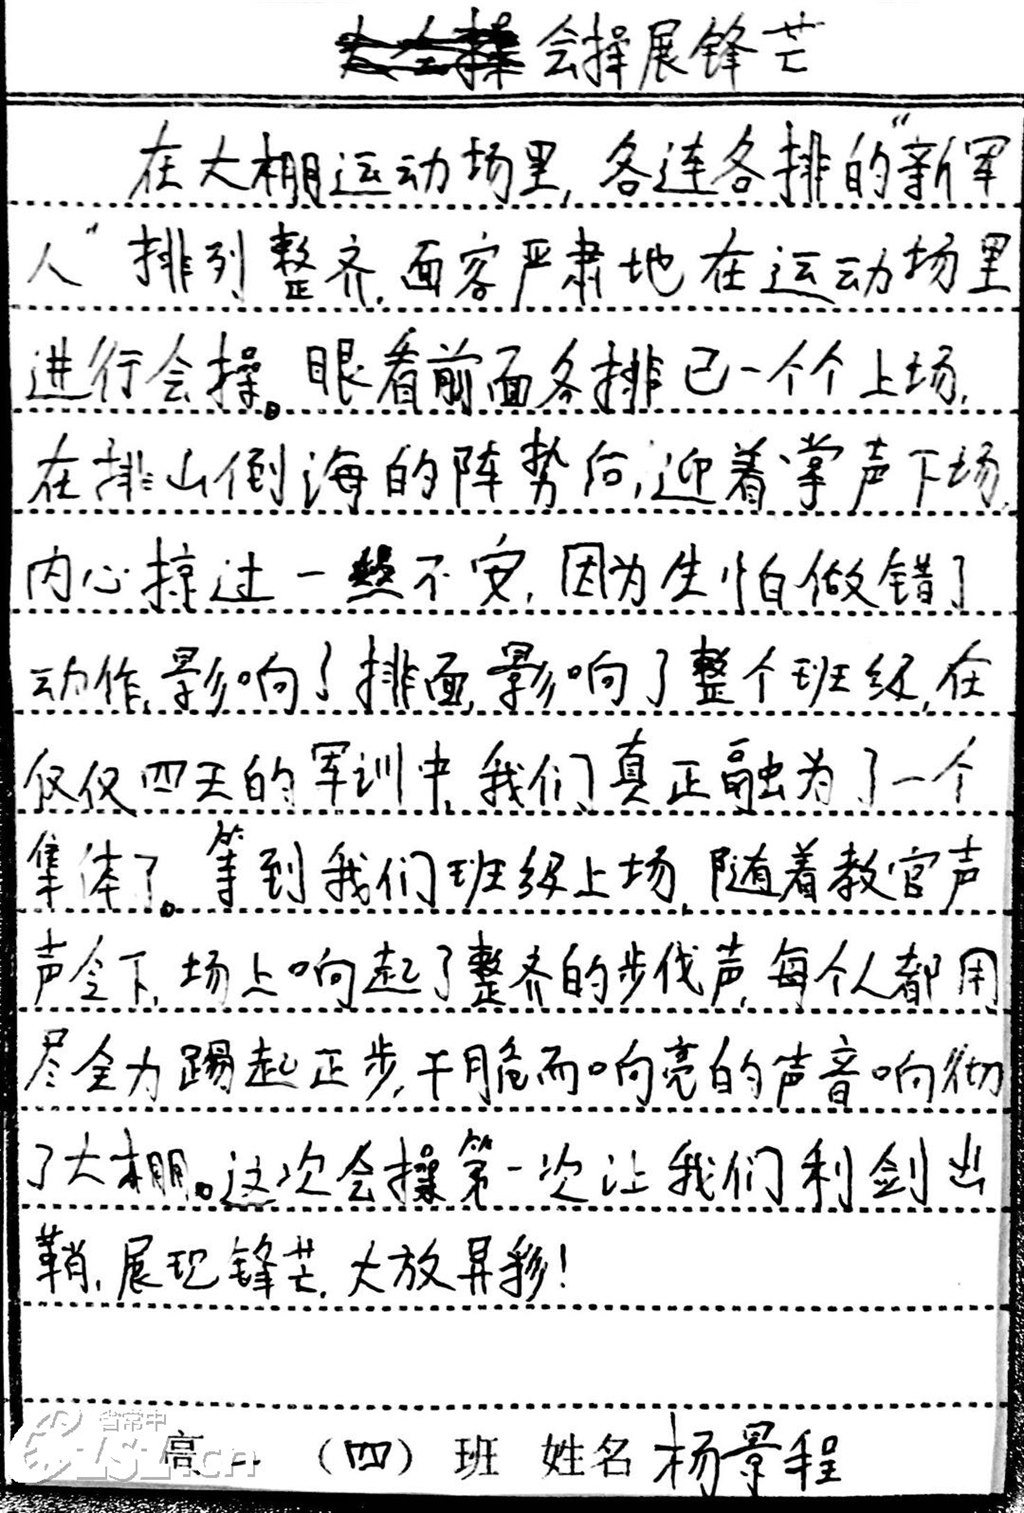 会操展锋芒
在大棚运动场里，各连各排的“新军
人”排列整齐，面容严肃地在运动场里
进行会操。眼看前面各排已一个个上场，
在排山倒海的阵势后，迎着掌声下场，
内心掠过一丝不安，因为生怕做错了
动作，影响了排面，影响了整个班级，在
仅仅四天的军训中，我们真正融为了一个
集体了。等到我们班级上场，随着教官声
声令下，场上响起了整齐的步伐声，每个人都用
尽全力踢起正步，干脆而响亮的声音响彻
了大棚。这次会操第一次让我们利剑出
鞘，展现锋芒，大放异彩！
高一（四）班 姓名 杨景程
省常中